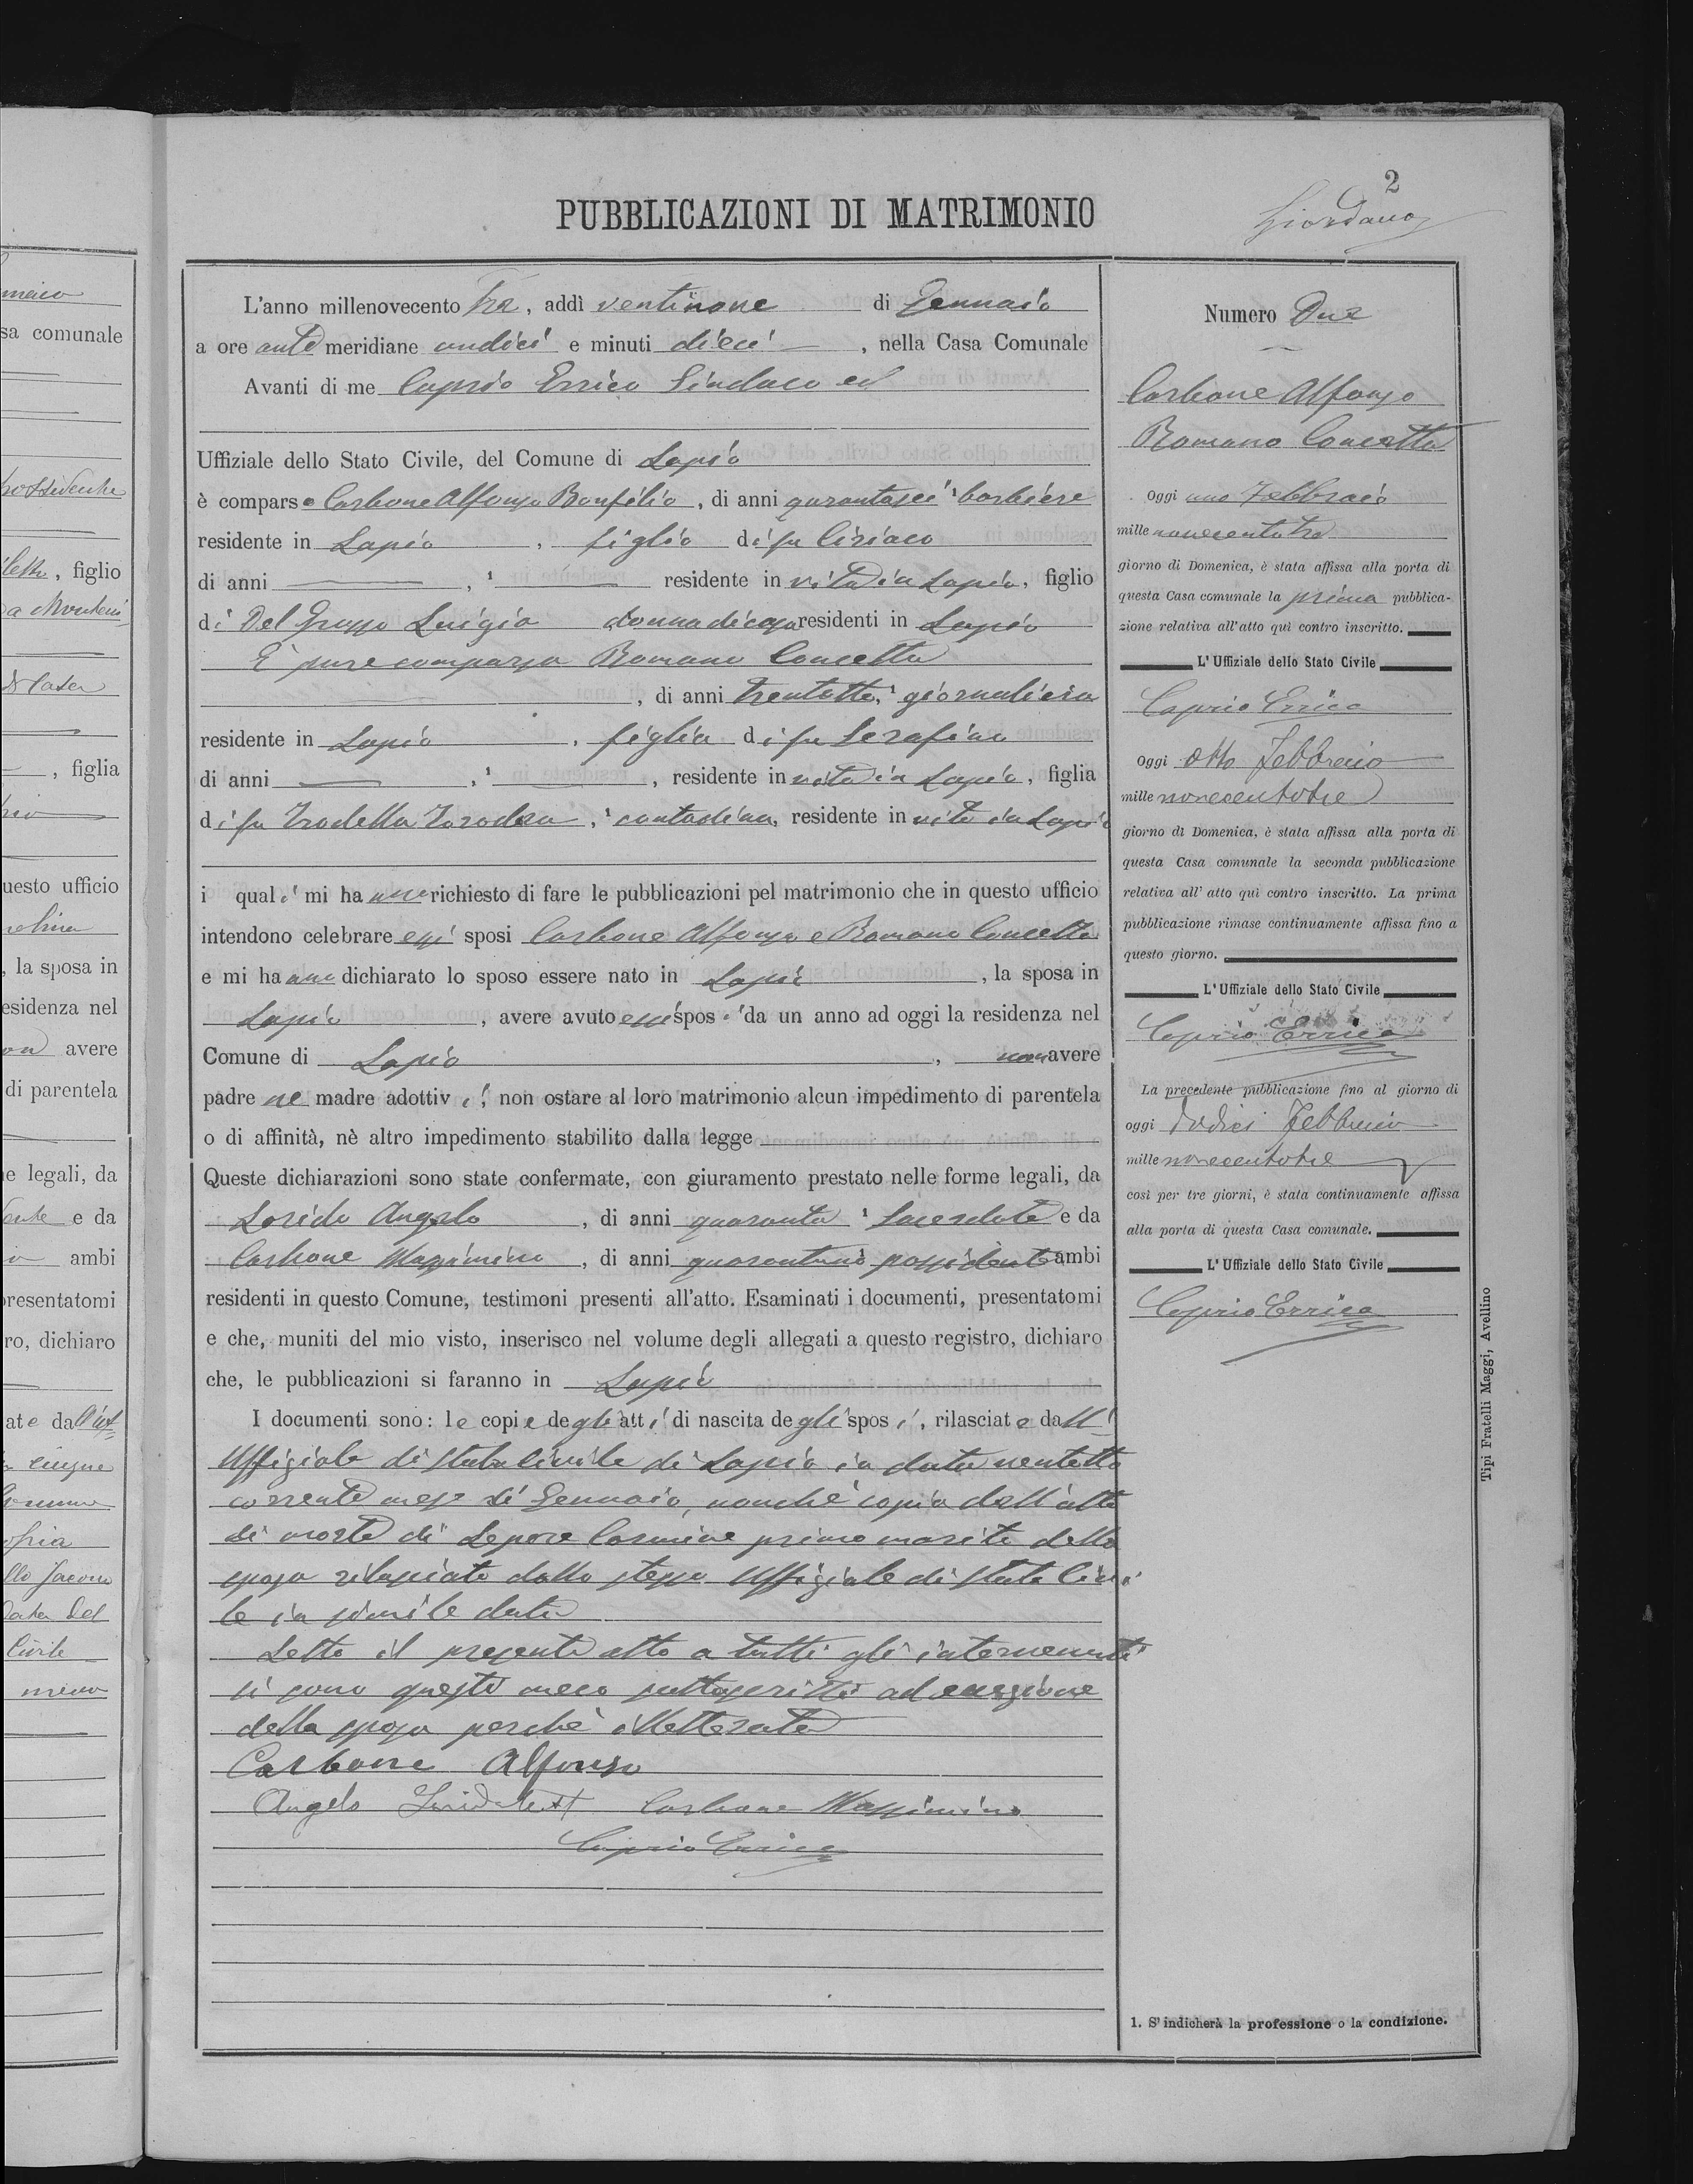 2
PUBBLICAZIONI DI MATRIMONIO
Giordano
L'anno millenovecento tre, addì ventinove di Gennaio
a ore anti meridiane undici e minuti dieci, nella Casa Comunale
Avanti di me Caprio Errico Sindaco ed
Uffiziale dello Stato Civile, del Comune di Lapio
è comparso Carbone Alfonso Bonfilio, di anni quarantasei ¹ barbiere
residente in Lapio, figlio di fu Ciriaco
di anni , ¹ residente in vita in Lapio, figlio
di Del Grosso Luigia donna di casa residenti in Lapio
È pure comparsa Romano Concetta
, di anni trentotto, ¹ giornaliera
residente in Lapio, figlia di fu Serafino
di anni , ¹ , residente in vita in Lapio, figlia
di fu Trodella , ¹ contadina, residente in vita in Lapio
i quali mi hanno richiesto di fare le pubblicazioni pel matrimonio che in questo ufficio
intendono celebrare essi sposi Carbone Alfonso e Romano Concetta
e mi hanno dichiarato lo sposo essere nato in Lapio, la sposa in
Lapio, avere avuto essi sposi da un anno ad oggi la residenza nel
Comune di Lapio, non avere
padre ne madre adottivi, non ostare al loro matrimonio alcun impedimento di parentela
o di affinità, nè altro impedimento stabilito dalla legge
Queste dichiarazioni sono state confermate, con giuramento prestato nelle forme legali, da
Angelo, di anni quaranta ¹ Sacerdote e da
Carbone Massimino, di anni quarantuno possidente ambi
residenti in questo Comune, testimoni presenti all'atto. Esaminati i documenti, presentatomi
e che, muniti del mio visto, inserisco nel volume degli allegati a questo registro, dichiaro
che, le pubblicazioni si faranno in Lapio
I documenti sono: le copie degli atti di nascita degli sposi, rilasciate dall'
Uffiziale di Stato Civile di Lapio in data ventotto
corrente mese di Gennaio, nonchè copia dell'atto
di morte di Lepore Carmine primo marito della
sposa rilasciato dallo stesso Uffiziale di Stato Civi
le in simile data
Letto il presente atto a tutti gli intervenuti
si sono questi meco sottoscritti ad eccezione
della sposa perchè illetterata
Carbone Alfonso
Angelo Carbone Massimino
Caprio Errico
Numero Due
Carbone Alfonso
Romano Concetta
Oggi uno Febbraio
mille novecentotre
giorno di Domenica, è stata affissa alla porta di
questa Casa comunale la prima pubblica-
zione relativa all'atto quì contro inscritto.
L'Uffiziale dello Stato Civile
Caprio Errico
Oggi otto Febbraio
mille novecentotre
giorno di Domenica, è stata affissa alla porta di
questa Casa comunale la seconda pubblicazione
relativa all'atto quì contro inscritto. La prima
pubblicazione rimase continuamente affissa fino a
questo giorno.
L'Uffiziale dello Stato Civile
Caprio Errico
La precedente pubblicazione fino al giorno di
oggi dodici Febbraio
mille novecentotre
così per tre giorni, è stata continuamente affissa
alla porta di questa Casa comunale.
L'Uffiziale dello Stato Civile
Caprio Errico
1. S'indicherà la professione o la condizione.
Tipi Fratelli Maggi, Avellino